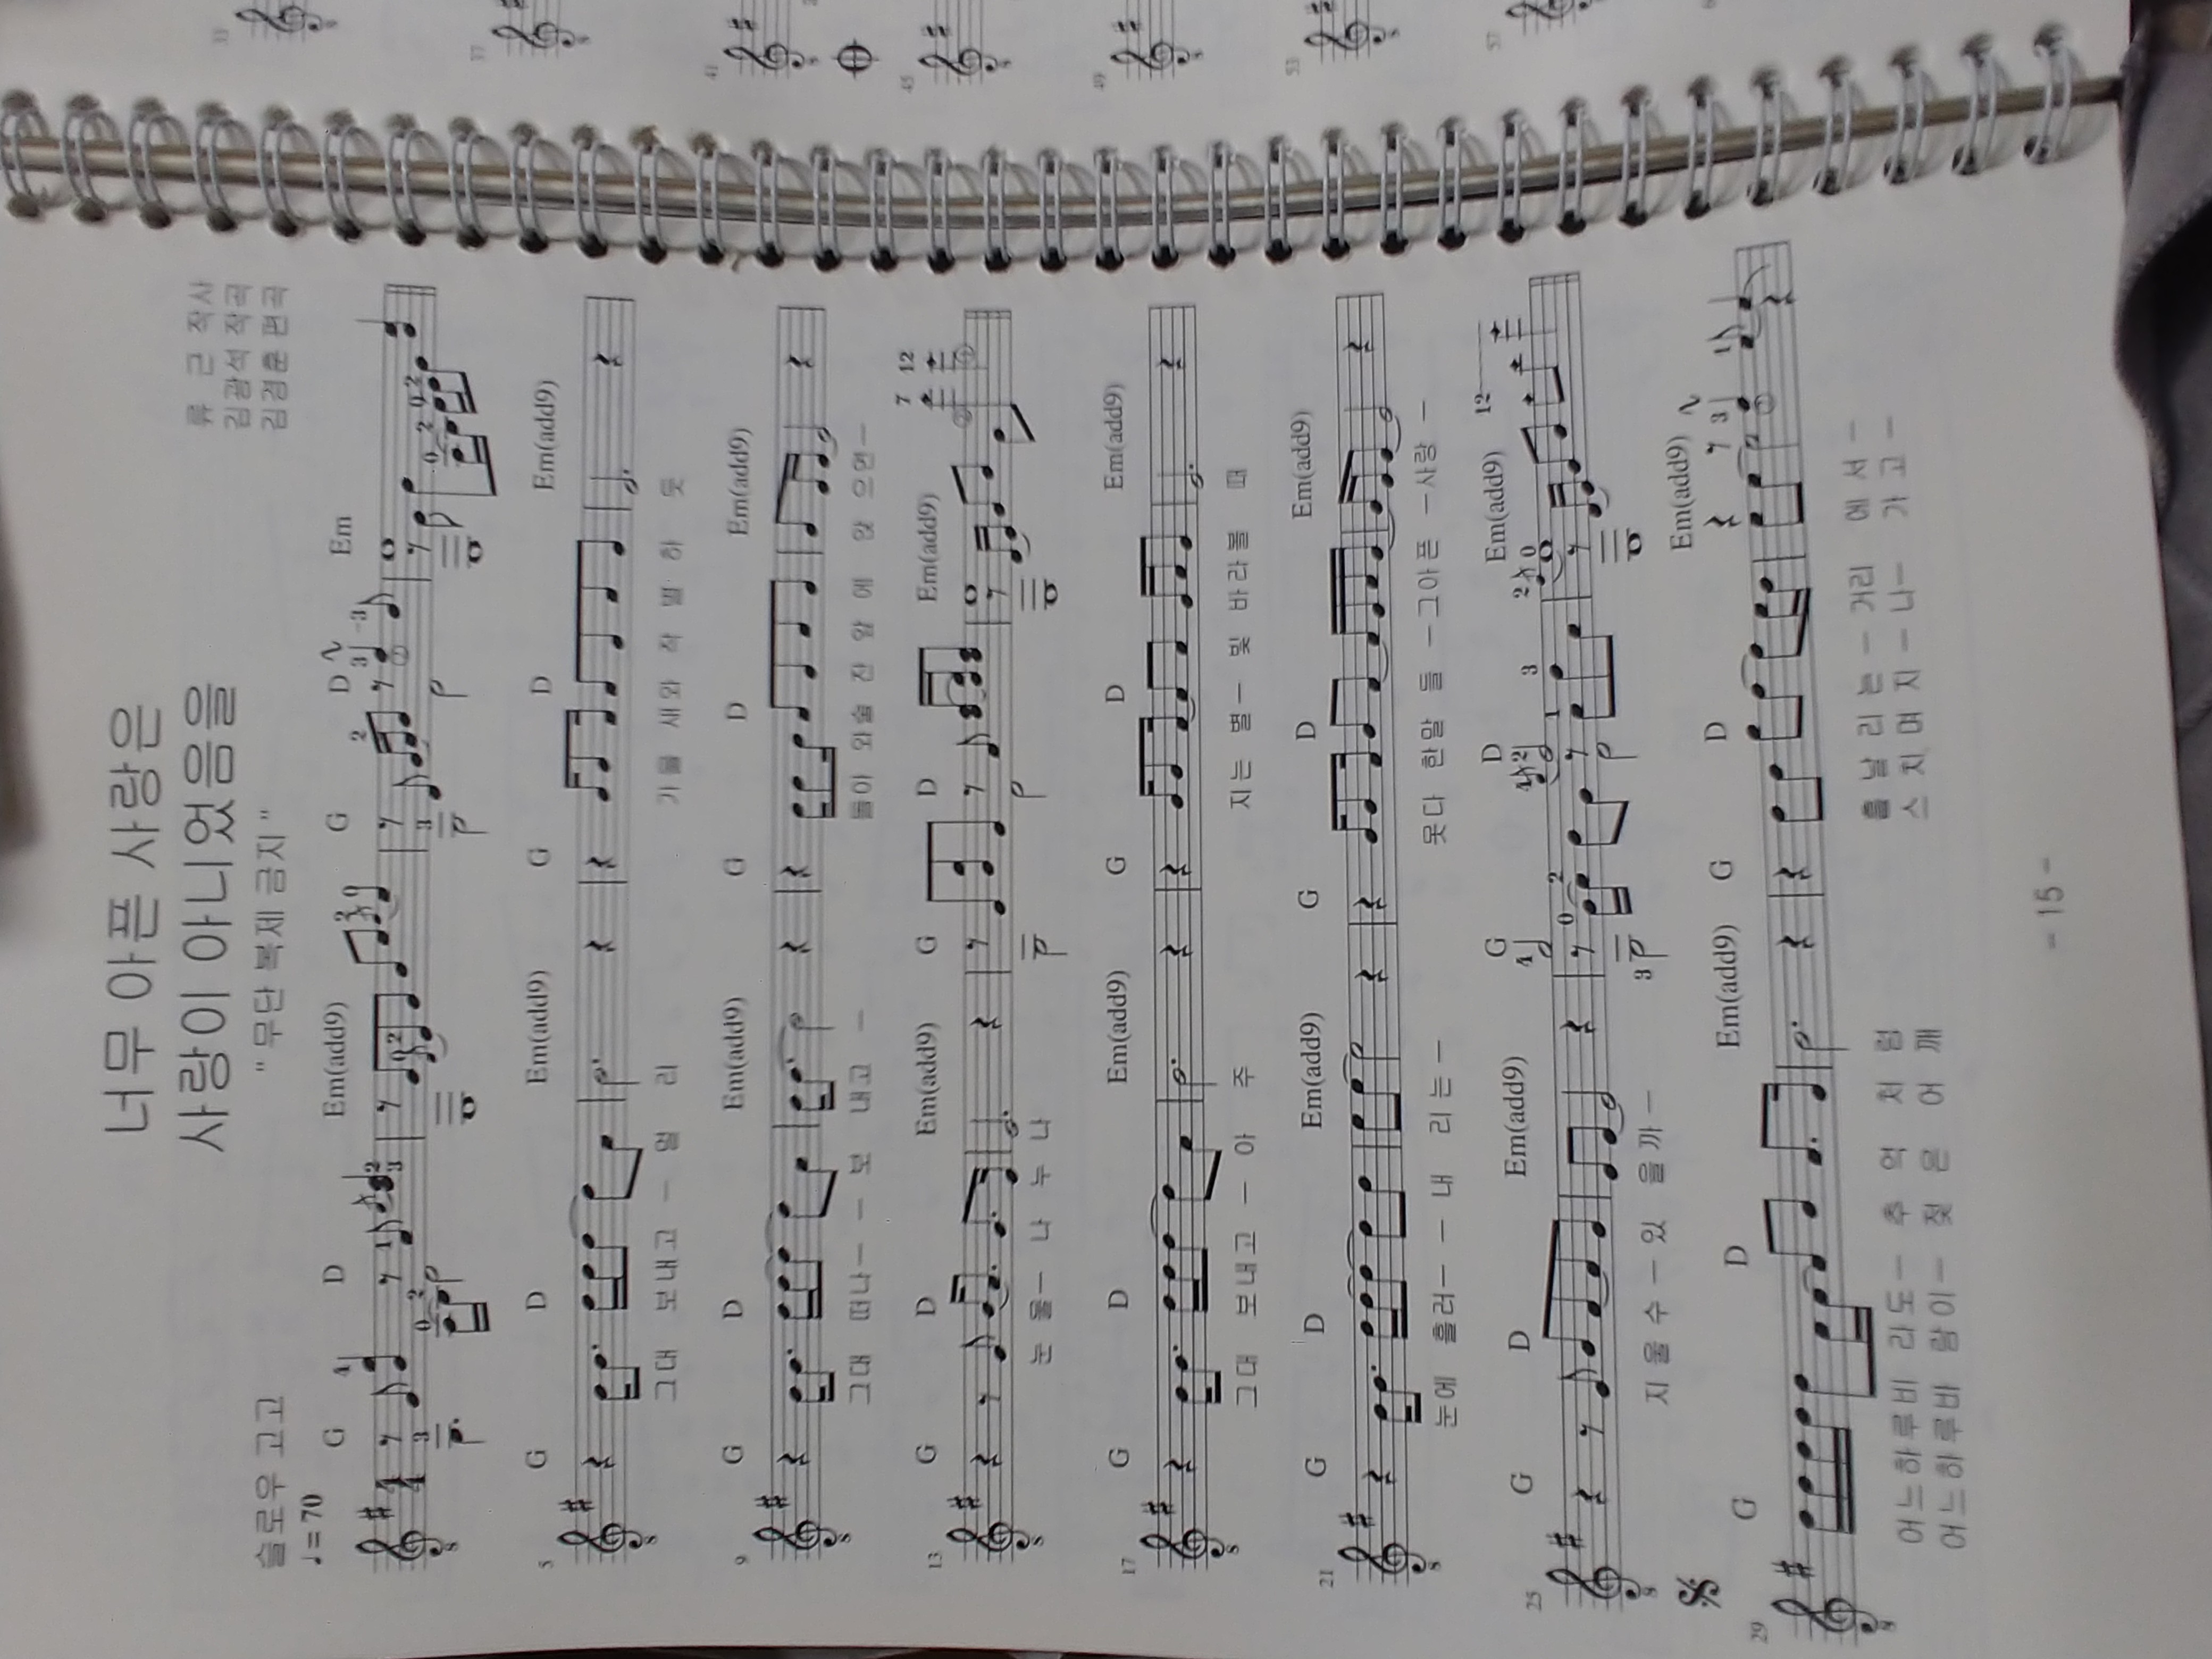 너무 아픈 사랑은
사랑이 아니었음을
" 무단 복제 금지 "
류 근 작사
김광석 작곡
김경훈 편곡
슬로우 고고
♩= 70
G D Em(add9) G D Em
5
G D Em(add9) G D Em(add9)
그대 보내고 - 멀 리 가을 새와 작 별 하 듯
9
G D Em(add9) G D Em(add9)
그대 떠나 - - 보 내고 - 돌이 와술 잔 앞 에 앉 으면 -
13
G D Em(add9) G D Em(add9)
7 12
눈 물 - 나 누 나
17
G D Em(add9) G D Em(add9)
그대 보내고 - 아 주 지는 별 - 빛 바라볼 때
21
G D Em(add9) G D Em(add9)
눈에 흘러 - - 내 리는 - 못다 한말 들 - 그아픈 - 사랑 -
25
G D Em(add9) G D Em(add9)
12
지 울 수 - 있 을까 -
29
G D Em(add9) G D Em(add9)
어느하루비 라도 - 추 억 처 럼 흩 날 리 는 - 거리 에 서 -
어느하루비 람이 - 젖 은 어 깨 스 치 며 지 - 나 - 가 고 -
- 15 -
33
37
41
45
49
53
57